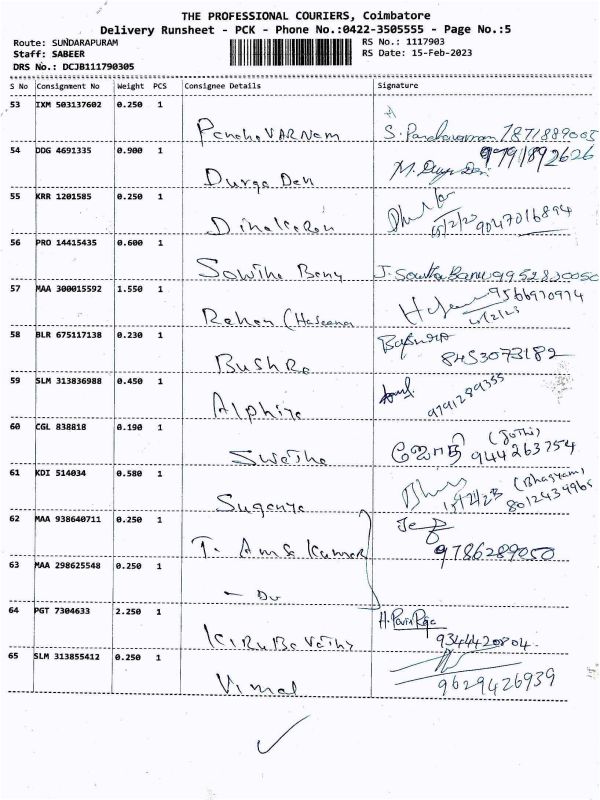 THE PROFESSIONAL COURIERS, Coimbatore
Delivery Runsheet - PCK - Phone No.:0422-3505555 - Page No.:5
Route: SUNDARAPURAM RS No.: 1117903
Staff: SABEER RS Date: 15-Feb-2023
DRS No.: DCJB111790305
S No Consignment No Weight PCS Consignee Details Signature
53 IXM 503137602 0.250 1
PanchaVARNam S. Panchavarnam 7871889008
54 DDG 4691335 0.900 1 9791892626
Durga Devi M. Durga Devi
55 KRR 1201585 0.250 1
Dinakaran 15/2/23 9047016894
56 PRO 14415435 0.600 1
Sowtha Banu J. Sowtha Banu 9952830050
57 MAA 300015592 1.550 1 9566970974
Rehan (Haseena 15/2/23
58 BLR 675117138 0.230 1
BuShRa 8453073182
59 SLM 313836988 0.450 1
Alphiya 9791289355
60 CGL 838818 0.190 1 ஜோதி (JoThi)
Swetha 944263754
61 KDI 514034 0.580 1 (Bhagyam)
Suganya 15/2/23 8012434965
62 MAA 938640711 0.250 1
T. AmSa Kumar 9786289050
63 MAA 298625548 0.250 1
- Do
64 PGT 7304633 2.250 1
KiRuBa Vathy 9344420804.
65 SLM 313855412 0.250 1
Vimal 9629426939